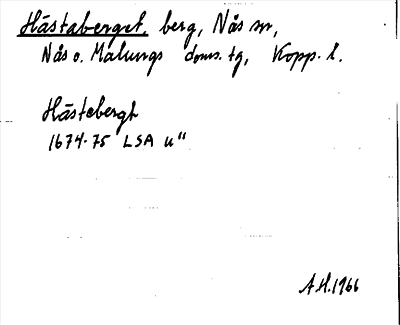 Hästaberget, berg, Nås sn,
Nås o. Malungs doms. tg, Kopp. l.
Hästebergh
1674-75 LSA u"
A.H. 1966